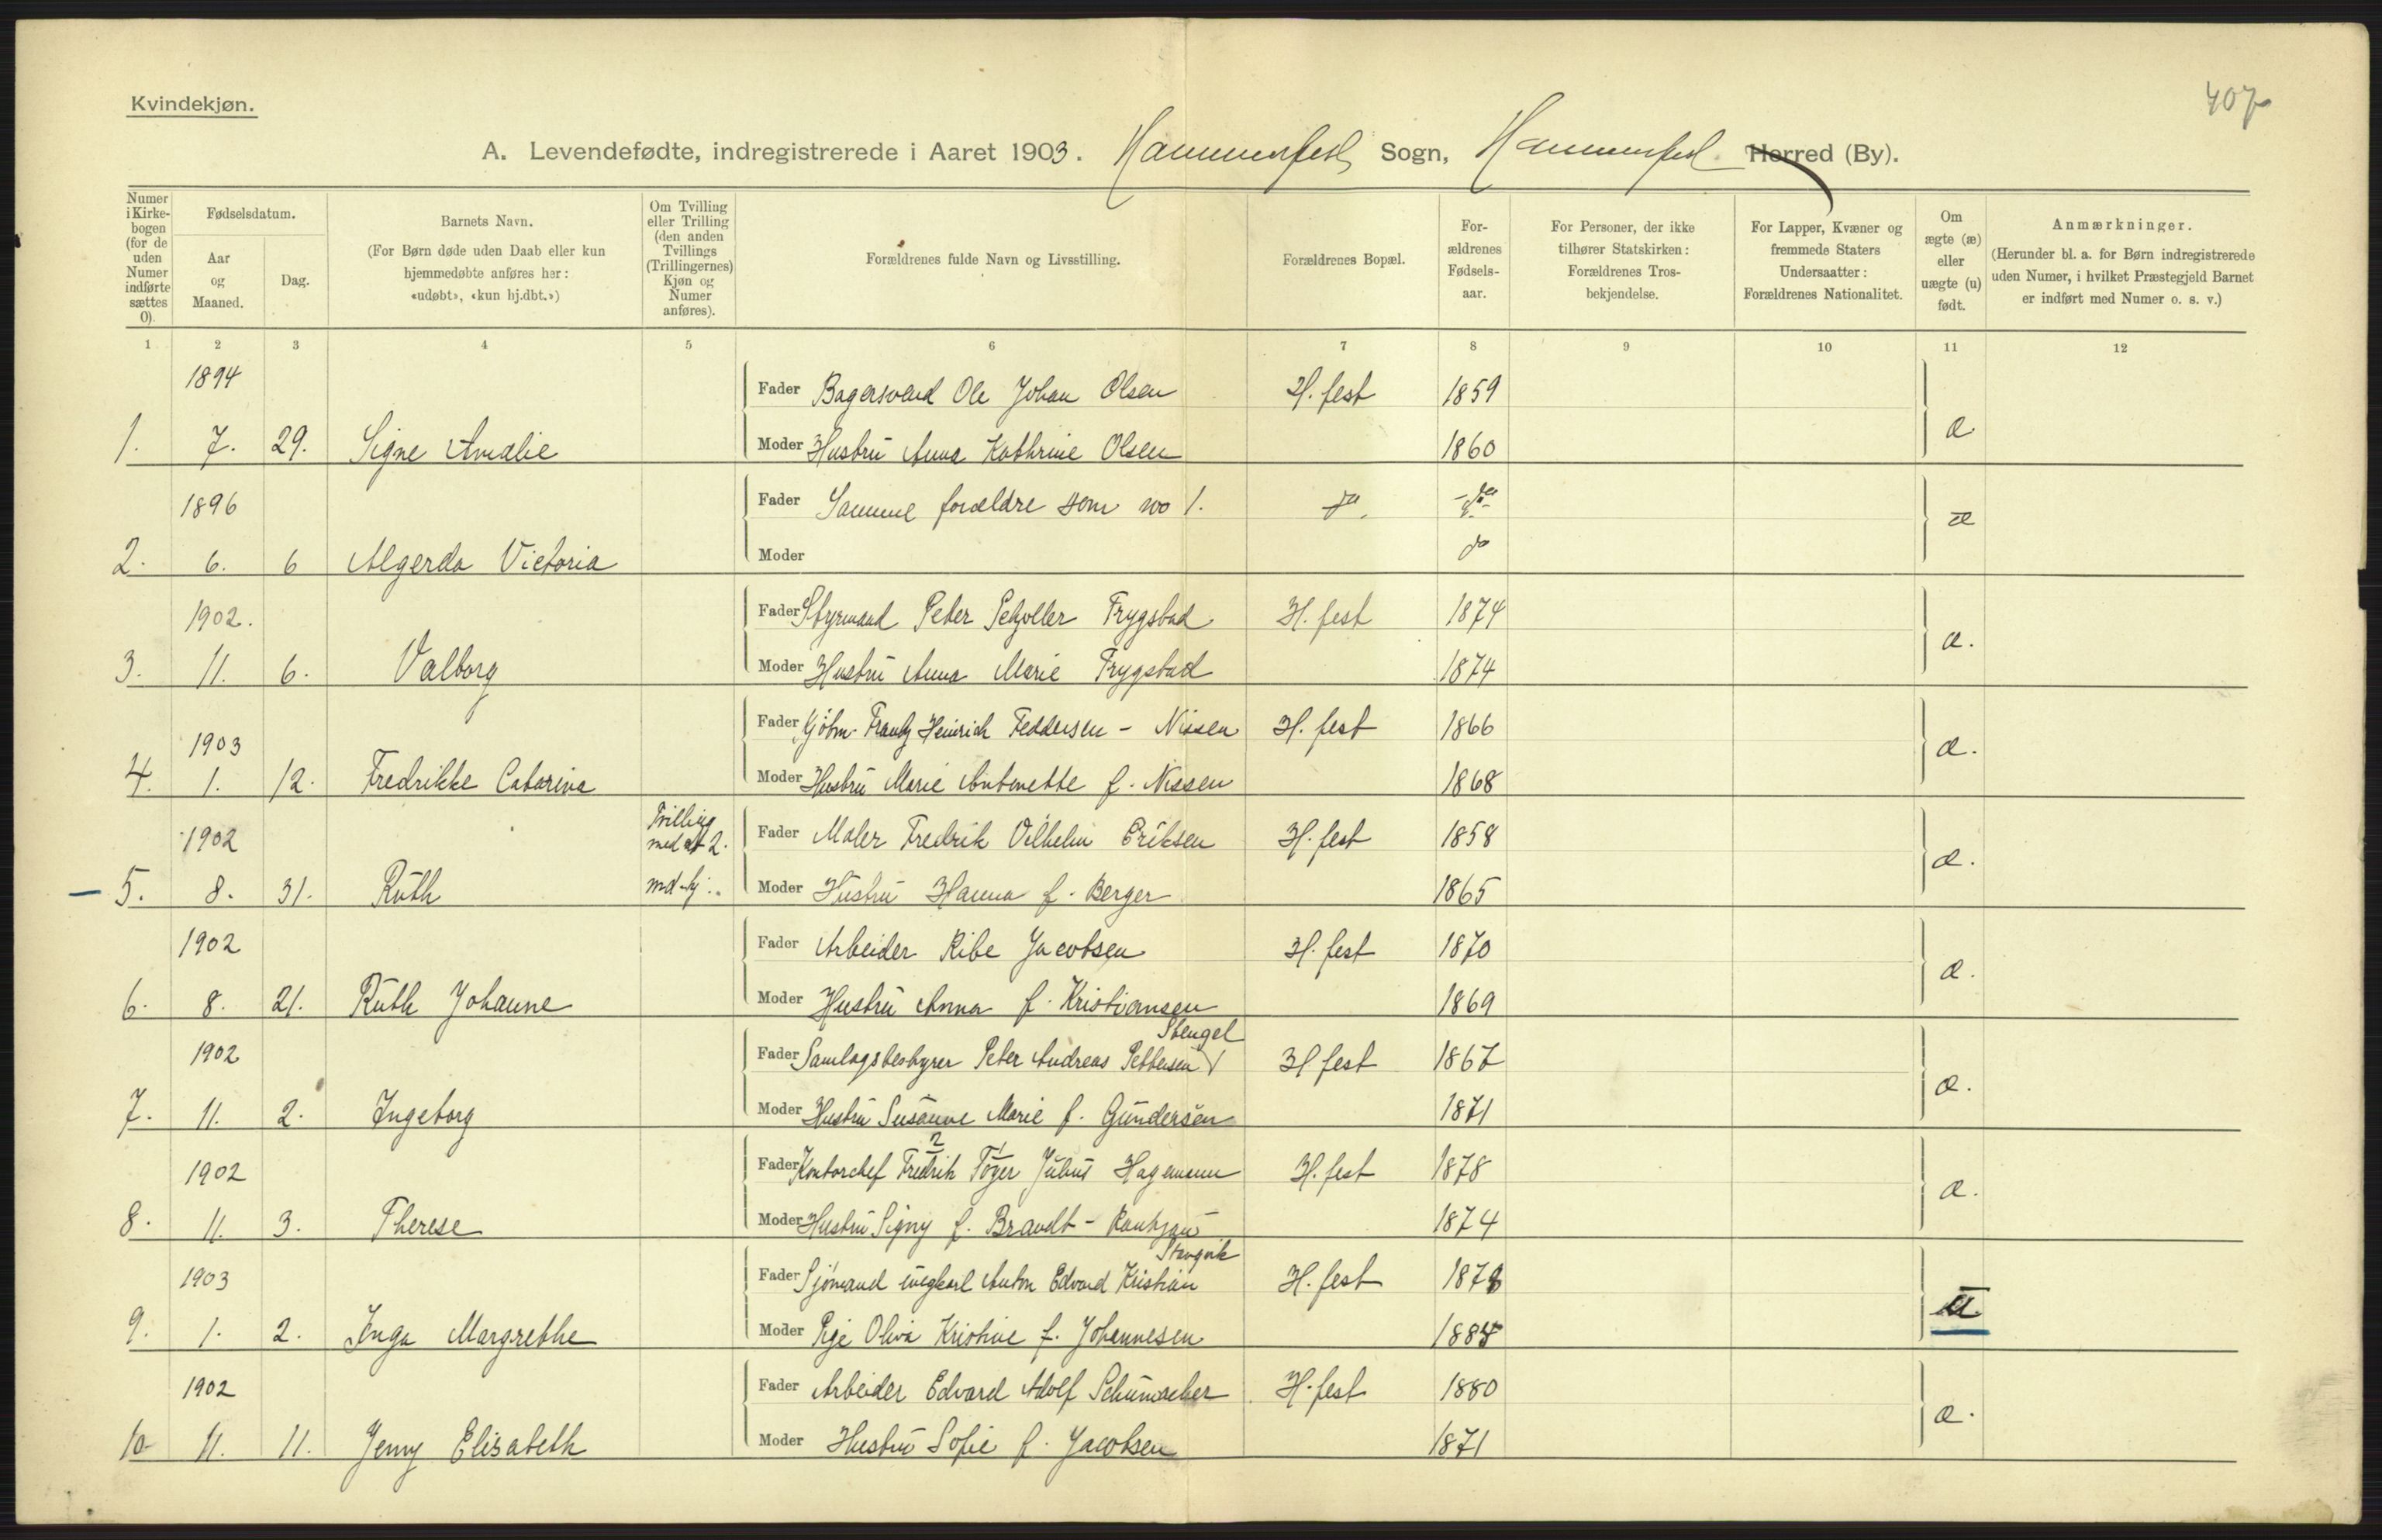 407
Kvindekjøn.
A. Levendefødte, indregistrerede i Aaret 1903. Hammerfest Sogn, Hammerfest Herred (By).
Numer i Kirkebogen (for de uden Numer indførte sættes 0).
Fødselsdatum.
Aar og Maaned.
Dag.
Barnets Navn.
(For Børn døde uden Daab eller kun hjemmedøbte anføres her: «udøbt», «kun hj.dbt.»)
Om Tvilling eller Trilling (den anden Tvillings (Trillingernes) Kjøn og Numer anføres).
Forældrenes fulde Navn og Livsstilling.
Forældrenes Bopæl.
Forældrenes Fødselsaar.
For Personer, der ikke tilhører Statskirken: Forældrenes Trosbekjendelse.
For Lapper, Kvæner og fremmede Staters Undersaatter: Forældrenes Nationalitet.
Om ægte (æ) eller uægte (u) født.
Anmærkninger.
(Herunder bl. a. for Børn indregistrerede uden Numer, i hvilket Præstegjeld Barnet er indført med Numer o. s. v.)
1 2 3 4 5 6 7 8 9 10 11 12
1894 Fader Bagersvend Ole Johan Olsen H.fest 1859
1. 7. 29. Signe Amalie Moder Hustru Anna Kathrine Olsen 1860 æ
1896 Fader Samme forældre som no 1. do do
2. 6. 6 Algerda Victoria Moder do æ
1902. Fader Styrmand Peter Schjøller Trygstad H.fest 1874
3. 11. 6. Valborg Moder Hustru Anna Marie Trygstad 1874 æ.
1903 Fader Kjøbm. Frantz Heinrich Feddersen - Nissen H.fest 1866
4. 1. 12. Fredrikke Catarina Moder Hustru Marie Antonette f. Nissen 1868 æ.
1902 Tvilling med 2. Fader Maler Fredrik Vilhelm Eriksen H.fest 1858
5. 8. 31. Ruth Moder Hustru Hanna f. Berger 1865 æ.
1902 Fader Arbeider Ribe Jacobsen H.fest 1870
6. 8. 21. Ruth Johanne Moder Hustru Anna f. Kristiansen 1869 æ.
Stengel
1902 Fader Samlagsbestyrer Peter Andreas Pettersen H fest 1867
7. 11. 2. Ingeborg Moder Hustru Susanne Marie f. Gundersen 1871 æ.
2 1
1902 Fader Kontorchef Fredrik Töger Julius Hagemann H.fest 1878
8. 11. 3. Therese Moder Hustru Signy f. Brandt - Rantzau 1874 æ.
Stangvik
1903 Fader Sjömand ungkarl Anton Edvard Kristian H.fest 1878
9. 1. 2. Inga Margrethe Moder Pige Oliva Kristine f. Johannesen 1884 u
1902 Fader Arbeider Edvard Adolf Schumacher H.fest 1880
10 11. 11. Jenny Elisabeth Moder Hustru Sofie f. Jacobsen 1871 æ.